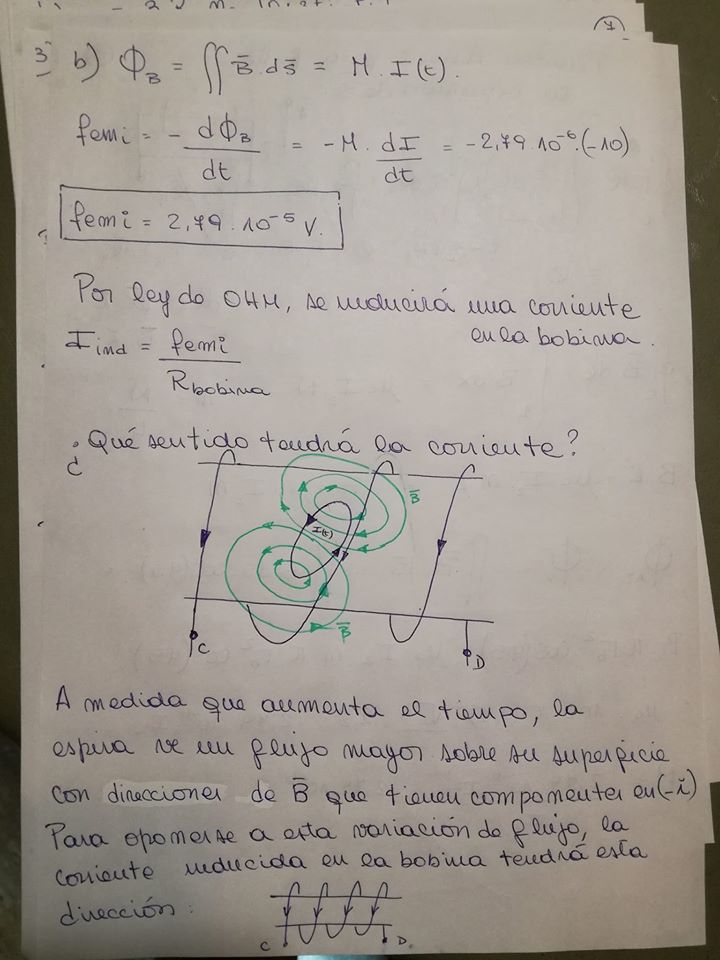 7
3 b) Φ_B = ∬ B̄ · ds̄ = M · I(t).
femi = - dΦ_B/dt = -M · dI/dt = -2,79 · 10⁻⁶ · (-10)
femi = 2,79 · 10⁻⁵ V.
Por ley de OHM, se inducirá una corriente
en la bobina.
I_ind = femi/R_bobina
¿Qué sentido tendrá la corriente?
B̄
I(t)
B̄
C
D
A medida que aumenta el tiempo, la
espira ve un flujo mayor sobre su superficie
con direcciones de B̄ que tienen componentes en (-ĭ)
Para oponerse a esta variación de flujo, la
corriente inducida en la bobina tendrá esta
dirección:
C D